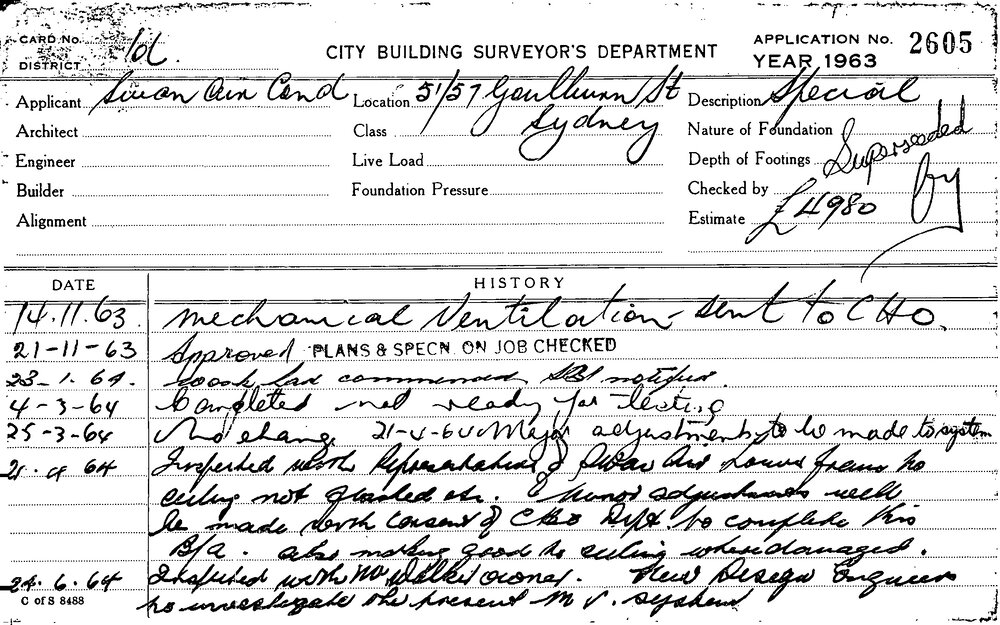 CARD No.
DISTRICT
CITY BUILDING SURVEYOR'S DEPARTMENT
APPLICATION No. 2605
YEAR 1963
Applicant Swan Air Cond Location 51/57 Goulburn St Description Special
Architect Class Sydney Nature of Foundation
Engineer Live Load Depth of Footings Superseded
Builder Foundation Pressure Checked by by
Alignment Estimate £4980
DATE HISTORY
14.11.63. Mechanical Ventilation - sent to CHO.
21-11-63 Approved PLANS & SPECN. ON JOB CHECKED
23-1.64. work has commenced, notified.
4-3-64 Completed not ready for testing
25-3-64 No change 21-4-64 Major adjustments to be made to system
21.4 64 Inspected with Representative of Swan Air frame to
ceiling not etc. Minor adjustments will
be made with consent of Dept. to complete this
B/A. also making good to ceiling where damaged.
24.6.64 Inspected with Mr Walker owner. New Design Engineer
to investigate the present M.V. system
C of S 8488